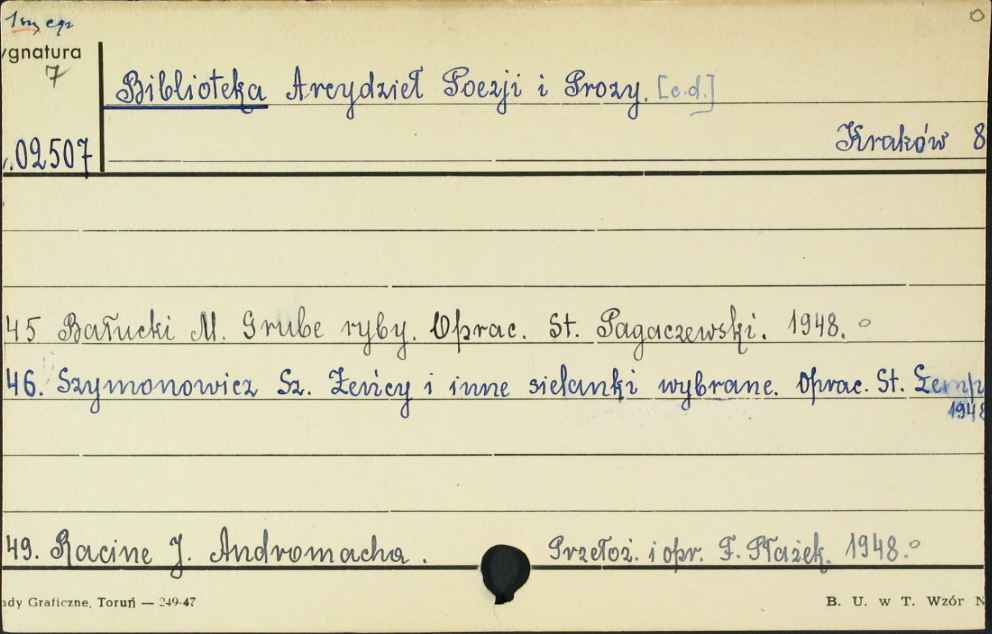 1 egz
ygnatura
7
Biblioteka Arcydzieł Poezji i Prozy. [c.d.]
Kraków 8
.02507
45 Bałucki M. Grube ryby. Oprac. St. Pagaczewski. 1948.
46. Szymonowicz Sz. Żeńcy i inne sielanki wybrane. Oprac. St.
1948
49. Racine J. Andromacha. Przełoż. i opr. F. Płażek. 1948.
ady Graficzne, Toruń — 249-47
B. U. w T. Wzór N